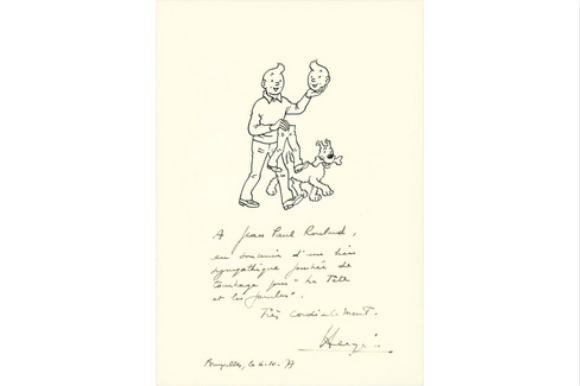 A Jean Paul Rouland,
en souvenir d'une très
sympathique journée de
tournage pour "La Tête
et les Jambes".
Très cordialement.
Hergé
Bruxelles, le 6.10.77